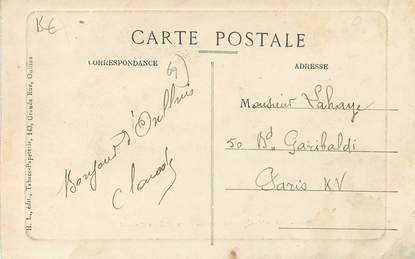 CARTE POSTALE
CORRESPONDANCE
ADRESSE
69
Bonjour d'Oullins
Claude
Monsieur Lahaye
50 Bd. Garibaldi
Paris XV
H. L., édit., Tabacs-Papeterie, 163, Grande Rue, Oullins